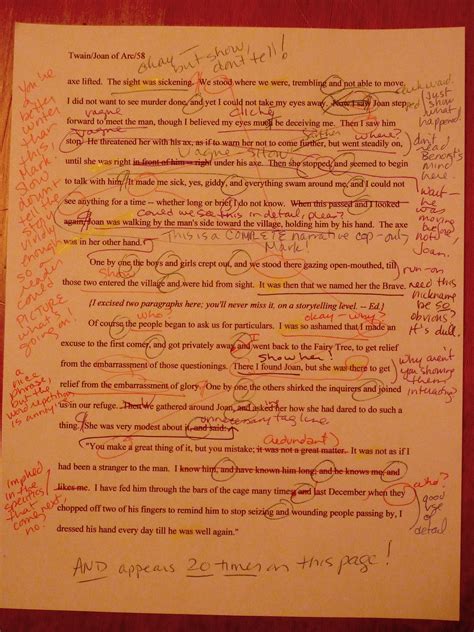 Twain/Joan of Arc/58
okay — but show, don't tell!
axe lifted. The sight was sickening. We stood where we were, trembling and not able to move.
I did not want to see murder done, and yet I could not take my eyes away. Now I saw Joan step
vague
cliché
forward to meet the man, though I believed my eyes must be deceiving me. Then I saw him
vague
where?
stop. He threatened her with his axe, as if to warn her not to come further, but went steadily on,
vague
show
until she was right in front of him -- right under his axe. Then she stopped, and seemed to begin
to talk with him. It made me sick, yes, giddy, and everything swam around me, and I could not
see anything for a time -- whether long or brief I do not know. When this passed and I looked
Could we see this in detail, please?
again, Joan was walking by the man's side toward the village, holding him by his hand. The axe
was in her other hand.
This is a COMPLETE narrative cop-out, Mark!
One by one the boys and girls crept out, and we stood there gazing open-mouthed, till
show
those two entered the village and were hid from sight. It was then that we named her the Brave.
[I excised two paragraphs here; you'll never miss it, on a storytelling level. -- Ed.]
who?
okay — why?
Of course the people began to ask us for particulars. I was so ashamed that I made an
excuse to the first comer, and got privately away, and went back to the Fairy Tree, to get relief
show her!
from the embarrassment of those questionings. There I found Joan, but she was there to get
relief from the embarrassment of glory. One by one the others shirked the inquirers and joined
us in our refuge. Then we gathered around Joan, and asked her how she had dared to do such a
unnecessary tag line
thing. She was very modest about it, and said:
redundant
"You make a great thing of it, but you mistake; it was not a great matter. It was not as if I
had been a stranger to the man. I know him, and have known him long; and he knows me, and
likes me. I have fed him through the bars of the cage many times; and last December when they
chopped off two of his fingers to remind him to stop seizing and wounding people passing by, I
dressed his hand every day till he was well again."
AND appears 20 times on this page!
You're
a
better
writer
than
this,
Mark.
Slow
down
so
reader
could
PICTURE
what's
going on.
a
nice
phrase,
but the
word repetition
is annoying
implied
in the
specifics
that
come next,
no?
awkward.
just
show
what
happened.
don't
read
Benoit's
mind
here
wait —
he
was
moving
before,
not
Joan.
run-on
need this
nickname
be so
obvious?
It's dull.
why aren't
you showing
them
interacting?
who?
good
use
of
detail